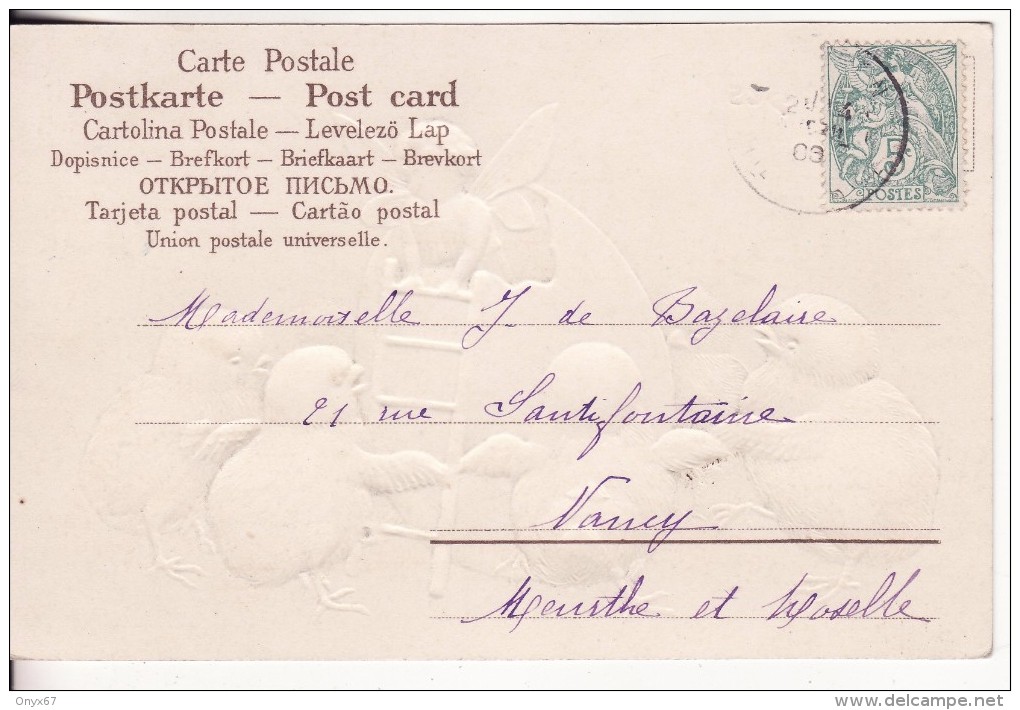 Carte Postale
Postkarte — Post card
Cartolina Postale — Levelező Lap
Dopisnice — Brefkort — Briefkaart — Brevkort
ОТКРЫТОЕ ПИСЬМО.
Tarjeta postal — Cartão postal
Union postale universelle.
5
POSTES
Mademoiselle J. de Bazelaire
21 rue Santifontaine
Nancy
Meurthe et Moselle
Onyx67
www.delcampe.net